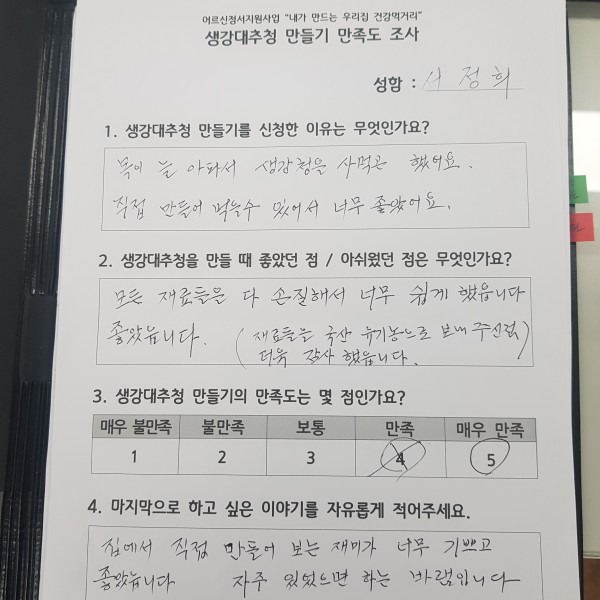 어르신정서지원사업 "내가 만드는 우리집 건강먹거리"
생강대추청 만들기 만족도 조사
성함 : 서정희
1. 생강대추청 만들기를 신청한 이유는 무엇인가요?
목이 늘 아파서 생강청을 사먹곤 했어요.
직접 만들어 먹을수 있어서 너무 좋았어요.
2. 생강대추청을 만들 때 좋았던 점 / 아쉬웠던 점은 무엇인가요?
모든 재료들을 다 손질해서 너무 쉽게 했읍니다
좋았읍니다. (재료들을 국산 유기농으로 보내주신점)
더욱 감사했읍니다.
3. 생강대추청 만들기의 만족도는 몇 점인가요?
매우 불만족 불만족 보통 만족 매우 만족
1 2 3 4 5
4. 마지막으로 하고 싶은 이야기를 자유롭게 적어주세요.
집에서 직접 만들어 보는 재미가 너무 기쁘고
좋았습니다 자주 있었으면 하는 바램입니다